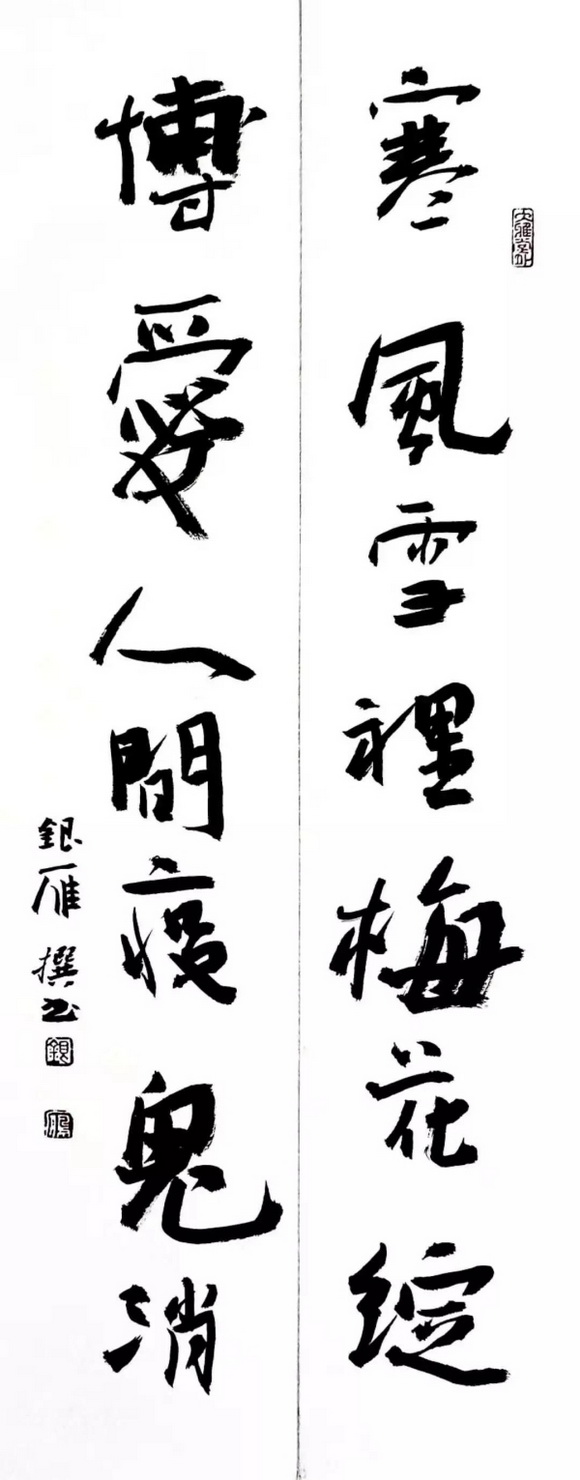 寒風雪裡梅花綻
博愛人間疫鬼消
銀雁撰书